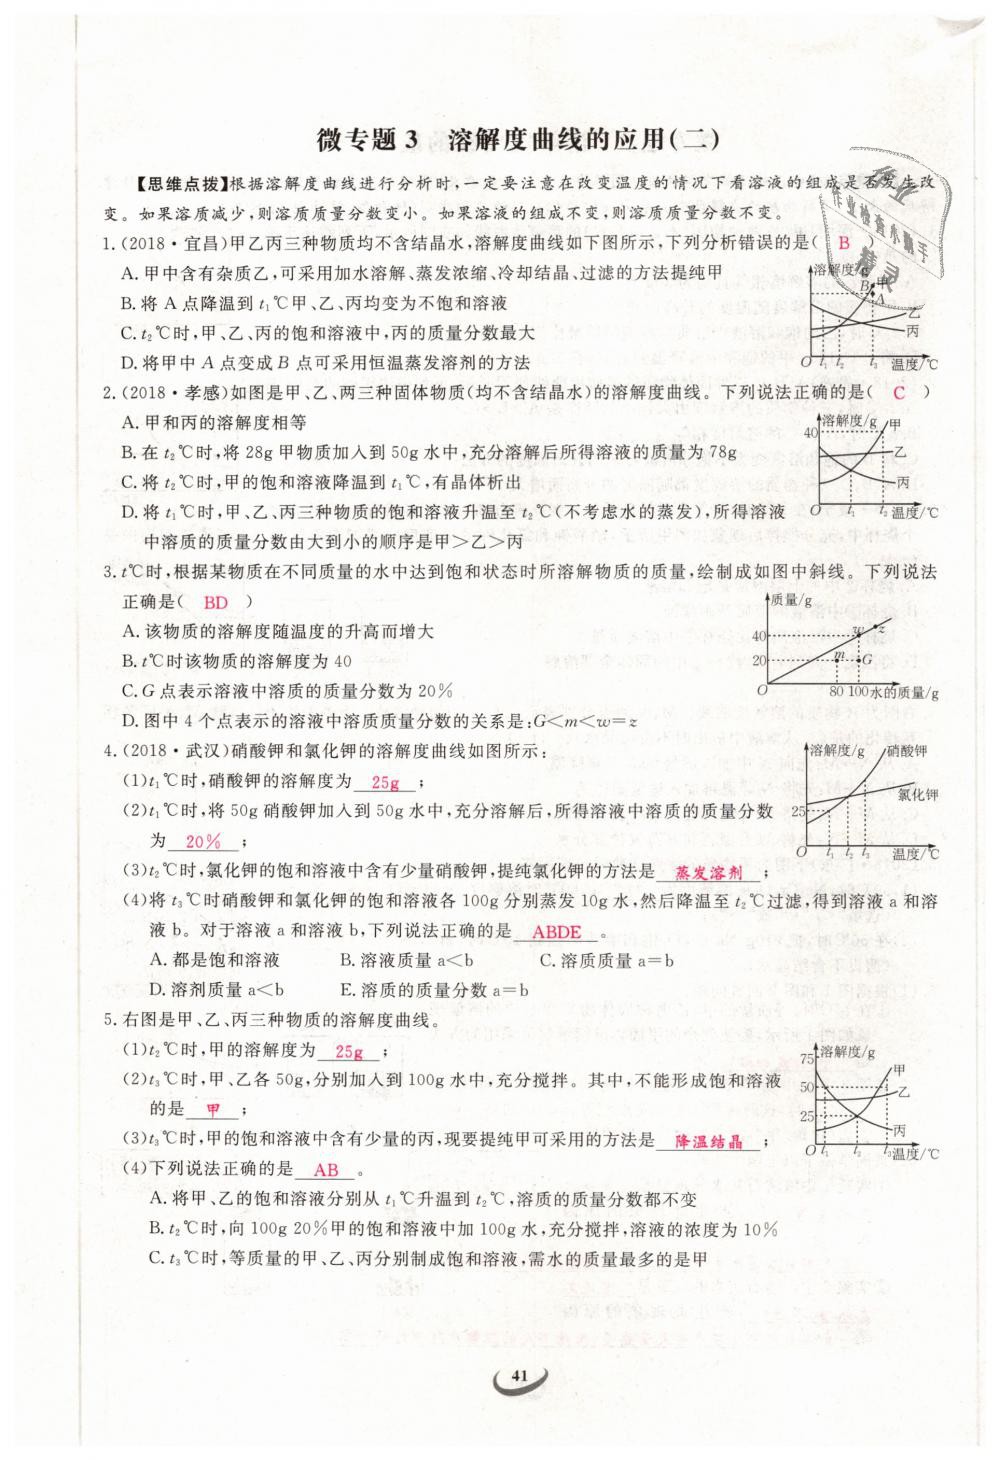 微专题 3　溶解度曲线的应用(二)
【思维点拨】根据溶解度曲线进行分析时,一定要注意在改变温度的情况下看溶液的组成是否发生改
变。如果溶质减少,则溶质质量分数变小。如果溶液的组成不变,则溶质质量分数不变。
1.(2018·宜昌)甲乙丙三种物质均不含结晶水,溶解度曲线如下图所示,下列分析错误的是( B )
A.甲中含有杂质乙,可采用加水溶解、蒸发浓缩、冷却结晶、过滤的方法提纯甲
B.将 A 点降温到 t₁℃甲、乙、丙均变为不饱和溶液
C.t₂℃时,甲、乙、丙的饱和溶液中,丙的质量分数最大
D.将甲中 A 点变成 B 点可采用恒温蒸发溶剂的方法
溶解度/g
B
甲
A
乙
丙
O t₁ t₂ t₃ 温度/℃
2.(2018·孝感)如图是甲、乙、两三种固体物质(均不含结晶水)的溶解度曲线。下列说法正确的是( C )
A.甲和丙的溶解度相等
B.在 t₂℃时,将 28g 甲物质加入到 50g 水中,充分溶解后所得溶液的质量为 78g
C.将 t₂℃时,甲的饱和溶液降温到 t₁℃,有晶体析出
D.将 t₁℃时,甲、乙、丙三种物质的饱和溶液升温至 t₂℃(不考虑水的蒸发),所得溶液
中溶质的质量分数由大到小的顺序是甲＞乙＞丙
溶解度/g
甲
40
乙
丙
O t₁ t₂ 温度/℃
3.t℃时,根据某物质在不同质量的水中达到饱和状态时所溶解物质的质量,绘制成如图中斜线。下列说法
正确是( BD )
A.该物质的溶解度随温度的升高而增大
B.t℃时该物质的溶解度为 40
C.G 点表示溶液中溶质的质量分数为 20%
D.图中 4 个点表示的溶液中溶质质量分数的关系是:G＜m＜w＝z
质量/g
40
w z
20
m G
O 80 100 水的质量/g
4.(2018·武汉)硝酸钾和氯化钾的溶解度曲线如图所示:
(1)t₁℃时,硝酸钾的溶解度为 25g ;
(2)t₁℃时,将 50g 硝酸钾加入到 50g 水中,充分溶解后,所得溶液中溶质的质量分数
为 20% ;
(3)t₂℃时,氯化钾的饱和溶液中含有少量硝酸钾,提纯氯化钾的方法是 蒸发溶剂 ;
(4)将 t₃℃时硝酸钾和氯化钾的饱和溶液各 100g 分别蒸发 10g 水,然后降温至 t₂℃过滤,得到溶液 a 和溶
液 b。对于溶液 a 和溶液 b,下列说法正确的是 ABDE 。
A.都是饱和溶液　B.溶液质量 a＜b　C.溶质质量 a＝b
D.溶剂质量 a＜b　E.溶质的质量分数 a＝b
溶解度/g
硝酸钾
氯化钾
25
O t₁ t₂ t₃ 温度/℃
5.右图是甲、乙、丙三种物质的溶解度曲线。
(1)t₂℃时,甲的溶解度为 25g ;
(2)t₃℃时,甲、乙各 50g,分别加入到 100g 水中,充分搅拌。其中,不能形成饱和溶液
的是 甲 ;
(3)t₃℃时,甲的饱和溶液中含有少量的丙,现要提纯甲可采用的方法是 降温结晶 ;
(4)下列说法正确的是 AB 。
A.将甲、乙的饱和溶液分别从 t₁℃升温到 t₂℃,溶质的质量分数都不变
B.t₂℃时,向 100g 20%甲的饱和溶液中加 100g 水,充分搅拌,溶液的浓度为 10%
C.t₃℃时,等质量的甲、乙、丙分别制成饱和溶液,需水的质量最多的是甲
溶解度/g
75
甲
50
乙
25
丙
O t₁ t₂ t₃ 温度/℃
作业检查小助手
精灵
41